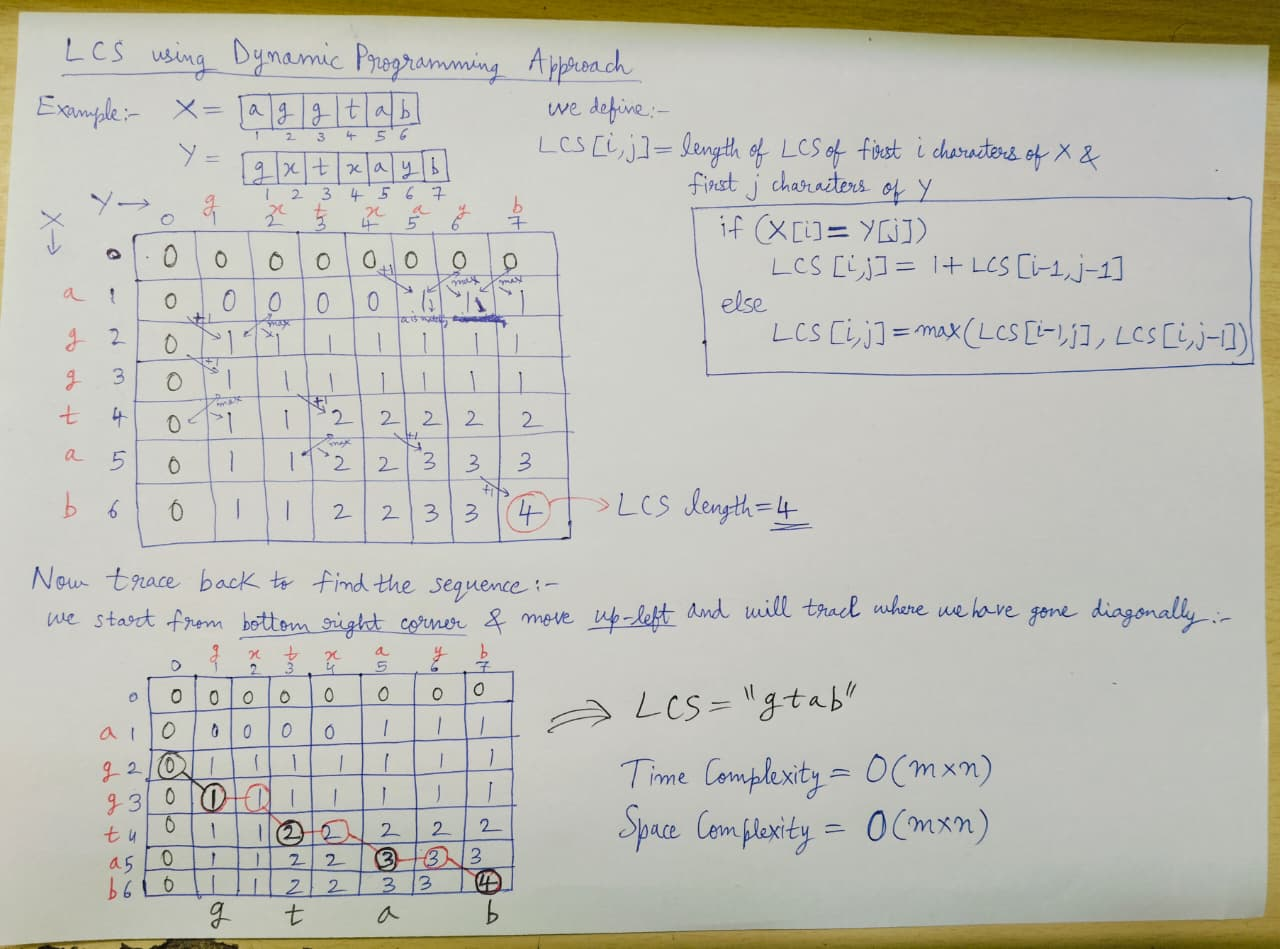 LCS using Dynamic Programming Approach
Example:- X = a g g t a b
1 2 3 4 5 6
Y = g x t x a y b
1 2 3 4 5 6 7
we define:-
LCS [i,j] = length of LCS of first i characters of X &
first j characters of Y
if (X[i] = Y[j])
LCS [i,j] = 1 + LCS [i-1, j-1]
else
LCS [i,j] = max(LCS[i-1,j], LCS[i,j-1])
Y → g x t x a y b
X ↓ 0 1 2 3 4 5 6 7
0 0 0 0 0 0 0 0 0
+1 max max
a 1 0 0 0 0 0 1 1 1
+1 max
g 2 0 1 1 1 1 1 1 1
+1
g 3 0 1 1 1 1 1 1 1
max +1
t 4 0 1 1 2 2 2 2 2
max +1
a 5 0 1 1 2 2 3 3 3
+1
b 6 0 1 1 2 2 3 3 4 → LCS length = 4
Now trace back to find the sequence :-
we start from bottom right corner & move up-left and will tract where we have gone diagonally :-
g x t x a y b
0 1 2 3 4 5 6 7
0 0 0 0 0 0 0 0 0
a 1 0 0 0 0 0 1 1 1
g 2 0 1 1 1 1 1 1 1
g 3 0 1 1 1 1 1 1 1
t 4 0 1 1 2 2 2 2 2
a 5 0 1 1 2 2 3 3 3
b 6 0 1 1 2 2 3 3 4
g t a b
⇒ LCS = "gtab"
Time Complexity = O(m×n)
Space Complexity = O(m×n)